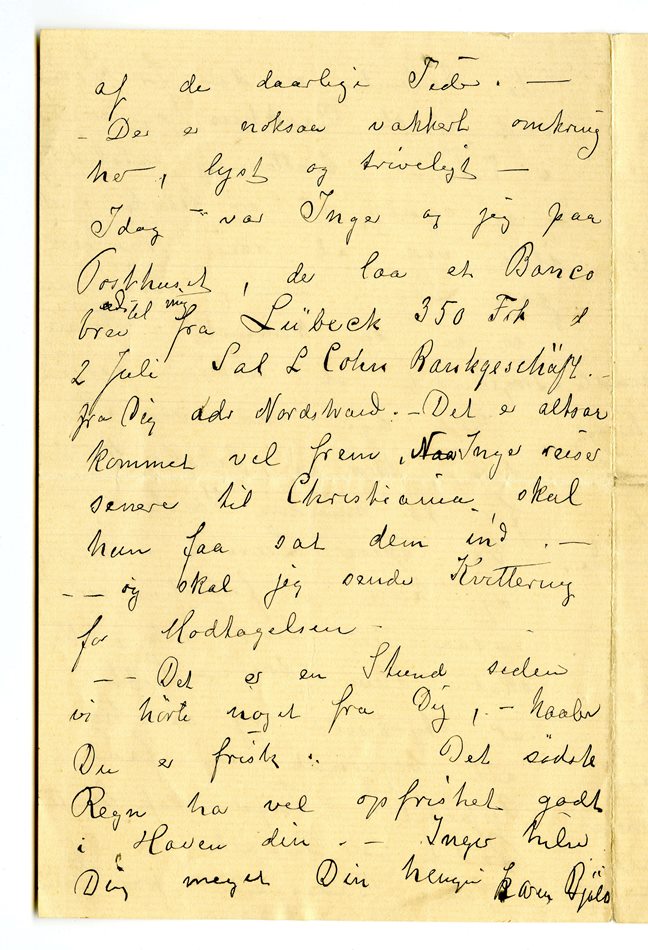 af de daarlige Tider. —
- Der er noksaa vakkert omkring
her, lyst og triveligt —
Idag - var Inger og jeg paa
Posthuset, der laa et Banco
til mig
brev fra Lübeck 350 Frk d
2 Juli Sal L Cohn Bankgeschäft. -
fra Dig adr Nordstrand. - Det er altsaa
kommet vel frem, Naar Inger reiser
senere til Christiania skal
hun faa sat dem ind. —
— — og skal jeg sende Kvittering
for Modtagelsen -
— — Det er en Stund siden
vi hørte noget fra Dig, - haaber
Du er frisk. Det sidste
Regn har vel opfrisket godt
i Haven din. — Inger hilser
Dig meget Din hengivne Karen